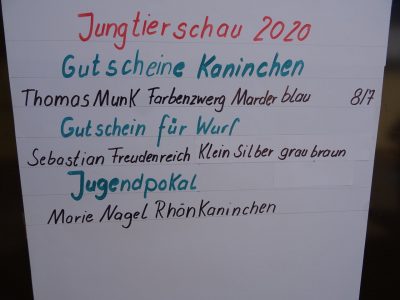 Jungtierschau 2020
Gutscheine Kaninchen
Thomas Munk Farbenzwerg Marder blau 8/7
Gutschein für Wurf
Sebastian Freudenreich Klein Silber graubraun
Jugendpokal
Marie Nagel Rhönkaninchen